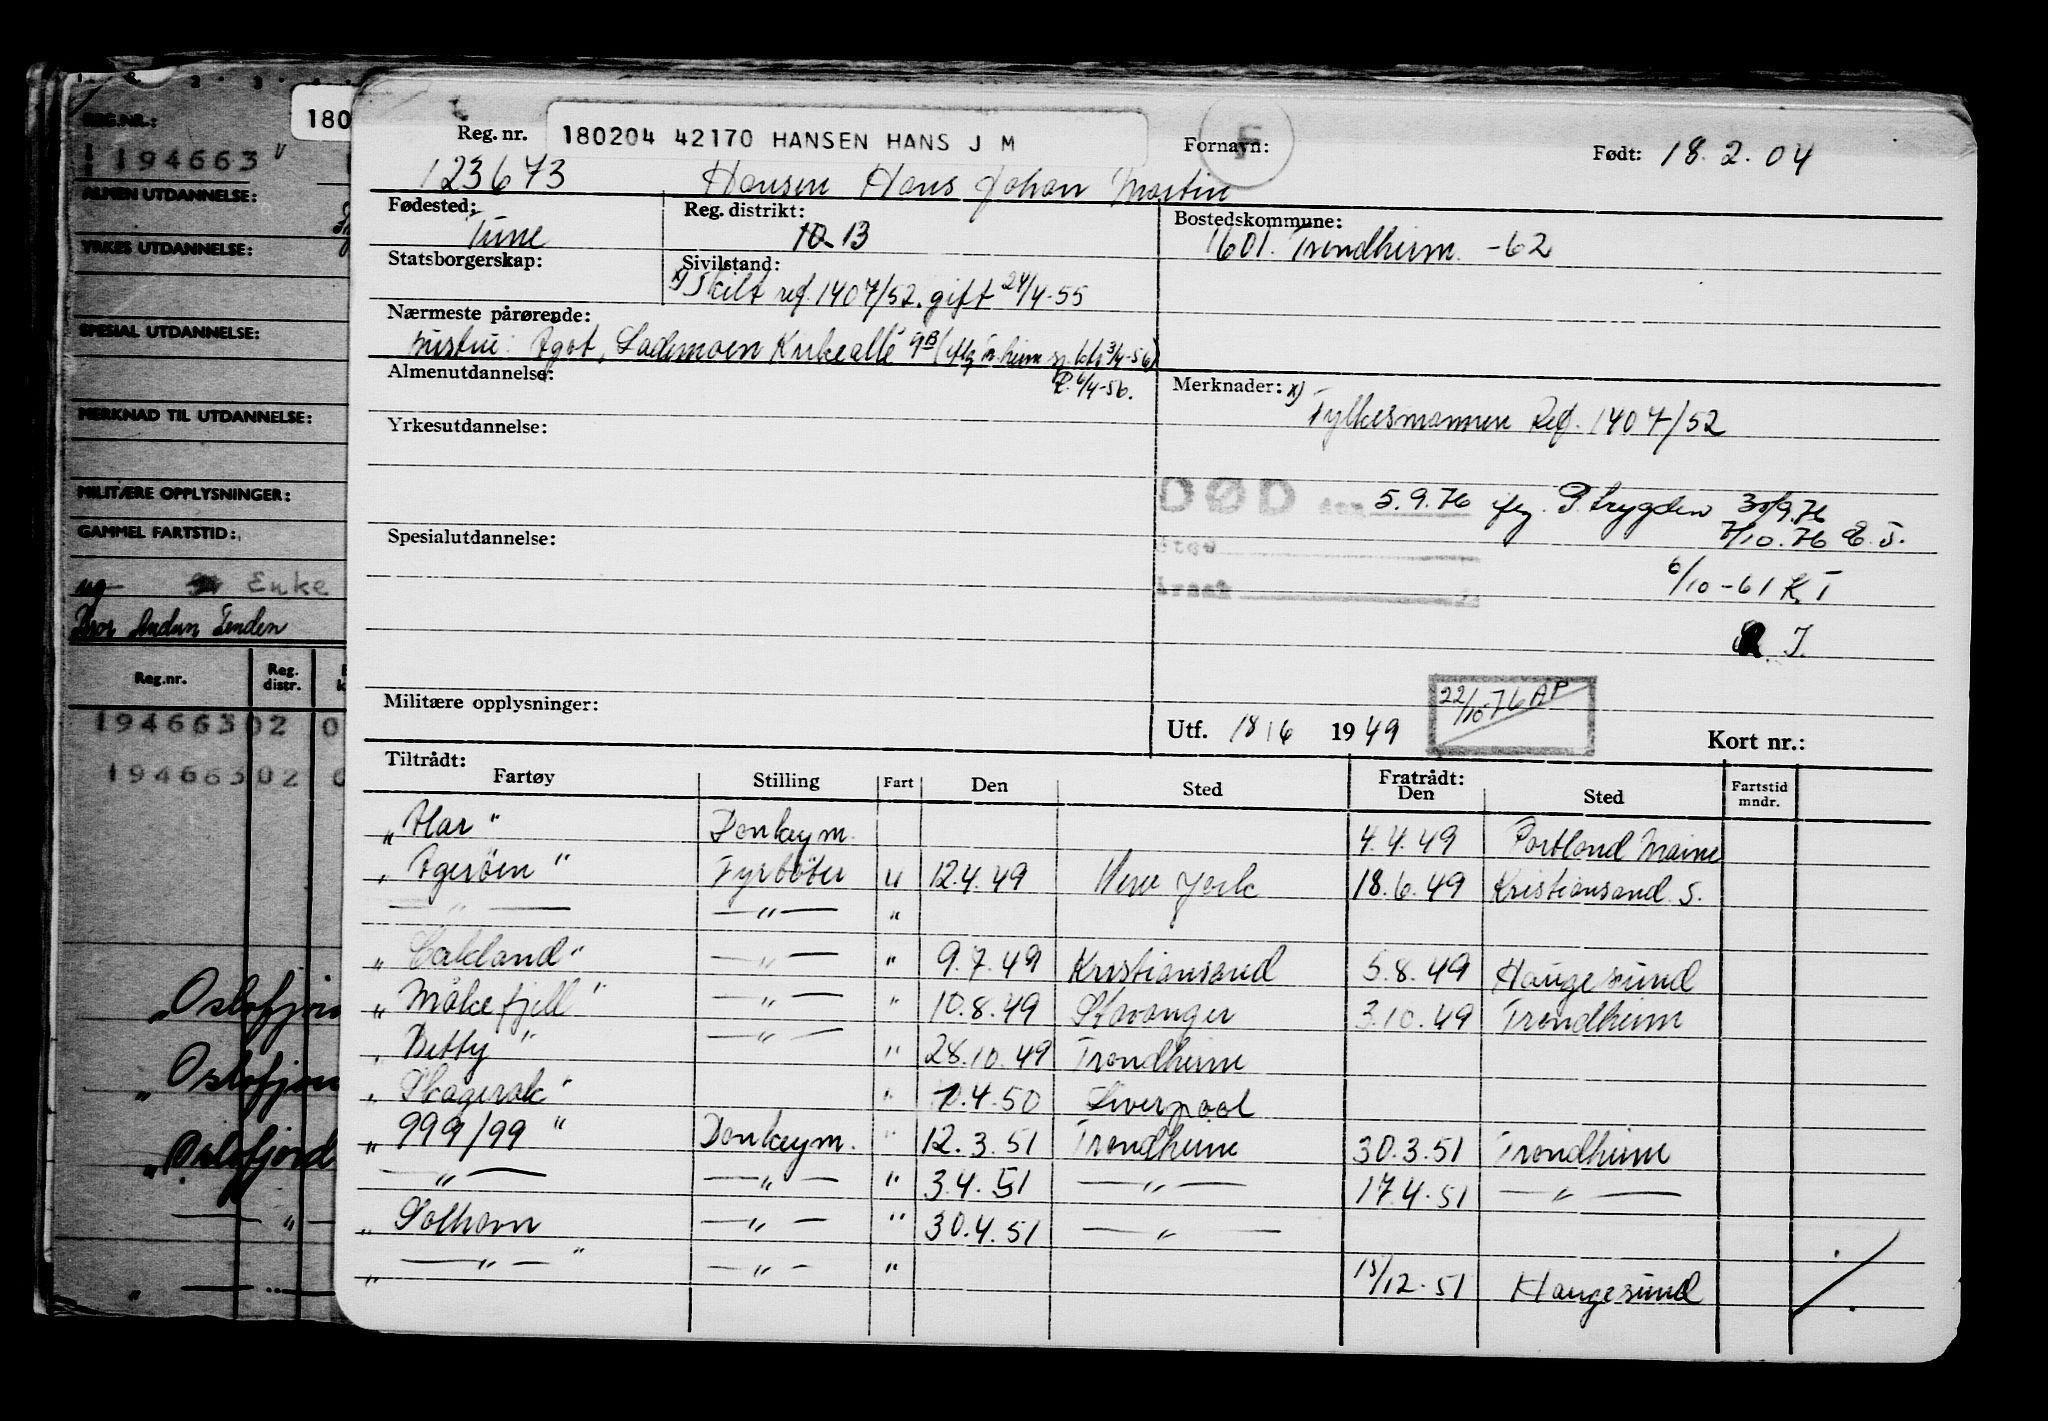 REG.NR.:
194663
ALMEN UTDANNELSE:
YRKES UTDANNELSE:
SPESIAL UTDANNELSE:
MERKNAD TIL UTDANNELSE:
MILITÆRE OPPLYSNINGER:
GAMMEL FARTSTID:
ug Enke
Reg.nr. Reg. distr.
194663 02 0
194663 02 0
"Oslofjor
"Oslofjor
"Oslofjord
— " —
" —
180
Reg. nr. 180204 42170 HANSEN HANS J M Fornavn: F Født: 18.2.04
123673 Hansen Hans Johan Martin
Fødested: Tune
Reg. distrikt: 10 13
Bostedskommune: 1601. Trondheim -62
Statsborgerskap:
Sivilstand: x) Skilt ref. 1407/52. gift 24/4-55
Nærmeste pårørende:
hustru: Ågot, Lademoen Kirkealle 9B
Almenutdannelse: 4-56.
Merknader: x)
Fylkesmannen Ref. 1407/52
Yrkesutdannelse:
DØD den 5.9.76 P.trygden 30/9.76
Spesialutdannelse:
Sted
7/10.76 E.J.
Årsak
6/10-61 K.I
J.
Militære opplysninger:
Utf. 18/6 1949 22/10 76 AP Kort nr.:
Tiltrådt: Fartøy Stilling Fart Den Sted Fratrådt: Den Sted Fartstid mndr.
"Har" Donkeym. 4.4.49 Portland Maine
"Agerøen" Fyrbøter u 12.4.49 New York 18.6.49 Kristiansand S.
— " — — " — "
"Oakland" — " — " 9.7.49 Kristiansand 5.8.49 Haugesund
"Måkefjell" — " — " 10.8.49 Stavanger 3.10.49 Trondheim
"Betty" — " — " 28.10.49 Trondheim
"Skagerak" " 4.50 Liverpool
"999/99" Donkeym. " 12.3.51 Trondheim 30.3.51 Trondheim
— " — — " — " 3.4.51 — " — 17.4.51 — " —
"Solhavn — " — " 30.4.51 — " —
" — " — " — " — " 15/12.51 Haugesund